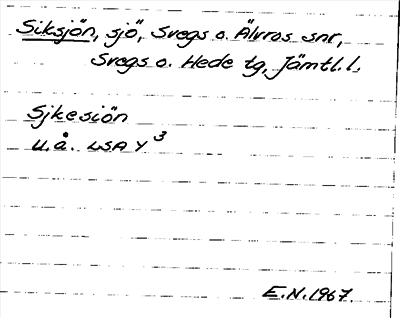 Siksjön, sjö, Svegs o. Älvros snr,
Svegs o. Hede tg, Jämtl.l.
Sjkesiön
u.å. LSA Y 3
E.N.1967.